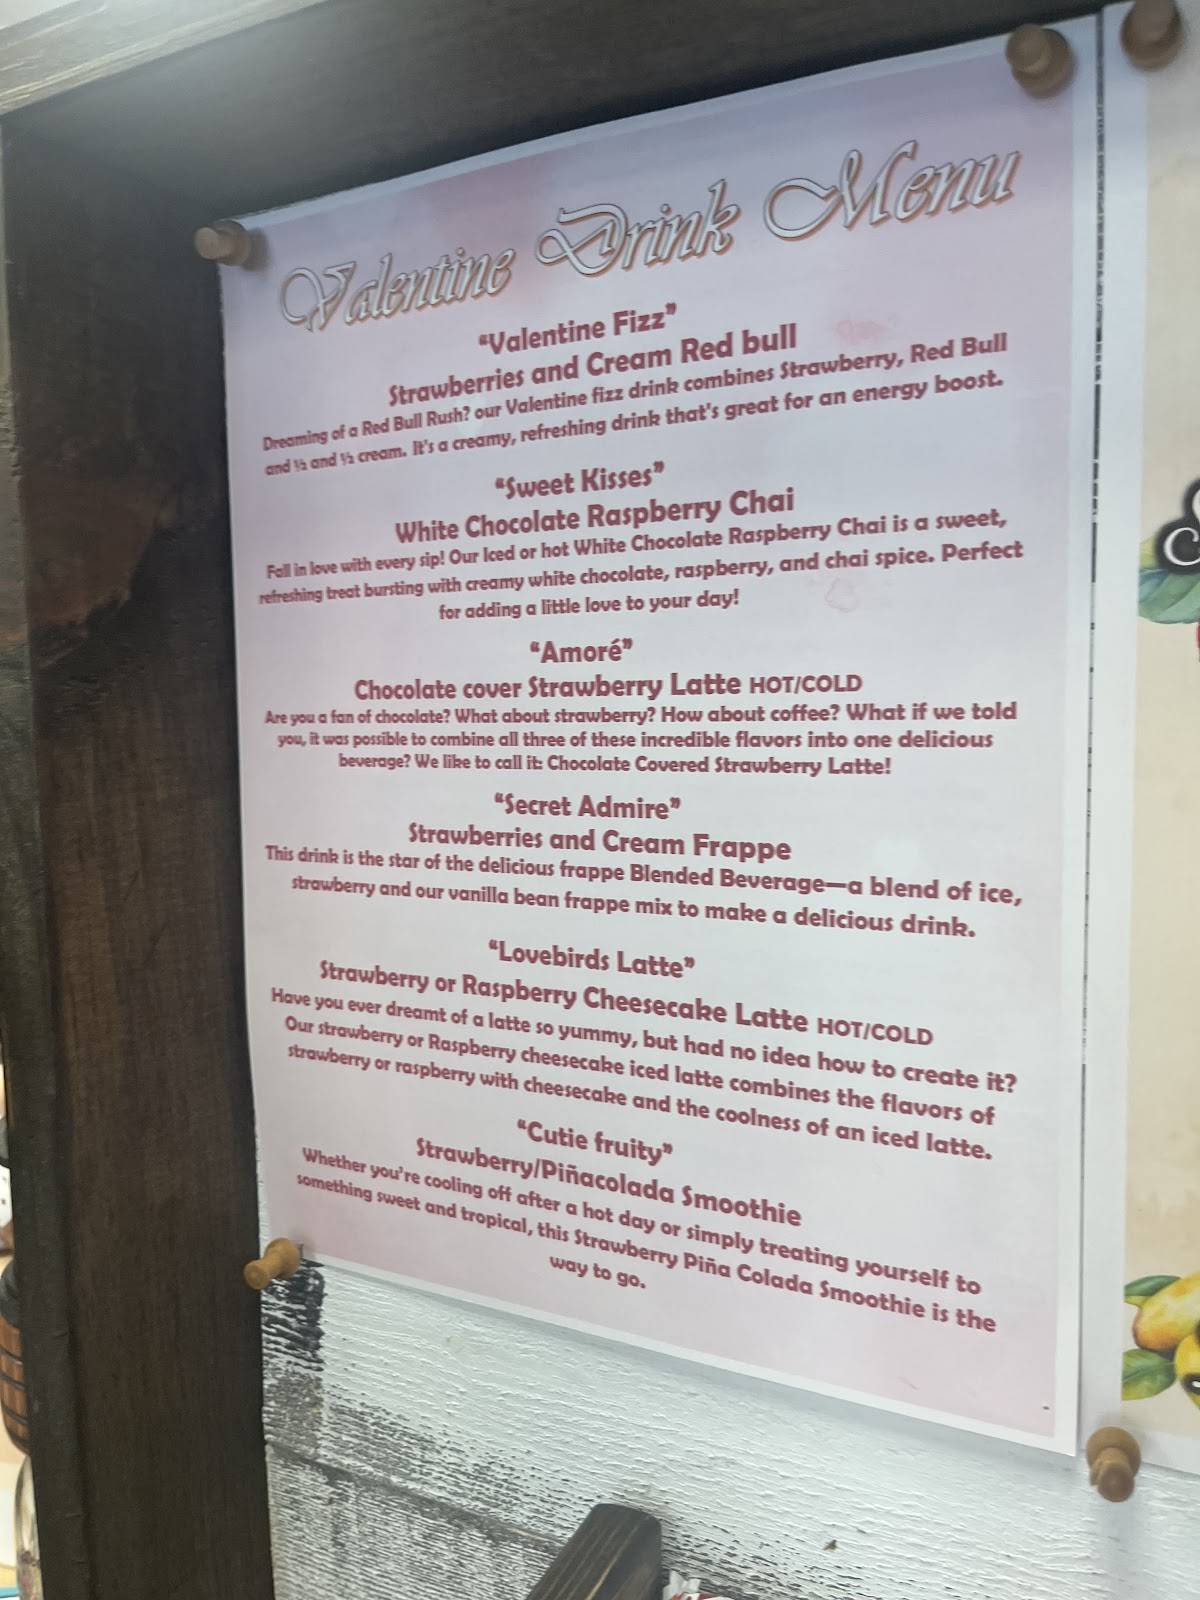 Valentine Drink Menu
“Valentine Fizz”
Strawberries and Cream Red bull
Dreaming of a Red Bull Rush? our Valentine fizz drink combines Strawberry, Red Bull
and ½ and ½ cream. It's a creamy, refreshing drink that's great for an energy boost.
“Sweet Kisses”
White Chocolate Raspberry Chai
Fall in love with every sip! Our Iced or hot White Chocolate Raspberry Chai is a sweet,
refreshing treat bursting with creamy white chocolate, raspberry, and chai spice. Perfect
for adding a little love to your day!
“Amoré”
Chocolate cover Strawberry Latte HOT/COLD
Are you a fan of chocolate? What about strawberry? How about coffee? What if we told
you, it was possible to combine all three of these incredible flavors into one delicious
beverage? We like to call it: Chocolate Covered Strawberry Latte!
“Secret Admire”
Strawberries and Cream Frappe
This drink is the star of the delicious frappe Blended Beverage—a blend of ice,
strawberry and our vanilla bean frappe mix to make a delicious drink.
“Lovebirds Latte”
Strawberry or Raspberry Cheesecake Latte HOT/COLD
Have you ever dreamt of a latte so yummy, but had no idea how to create it?
Our strawberry or Raspberry cheesecake iced latte combines the flavors of
strawberry or raspberry with cheesecake and the coolness of an iced latte.
“Cutie fruity”
Strawberry/Piñacolada Smoothie
Whether you're cooling off after a hot day or simply treating yourself to
something sweet and tropical, this Strawberry Piña Colada Smoothie is the
way to go.